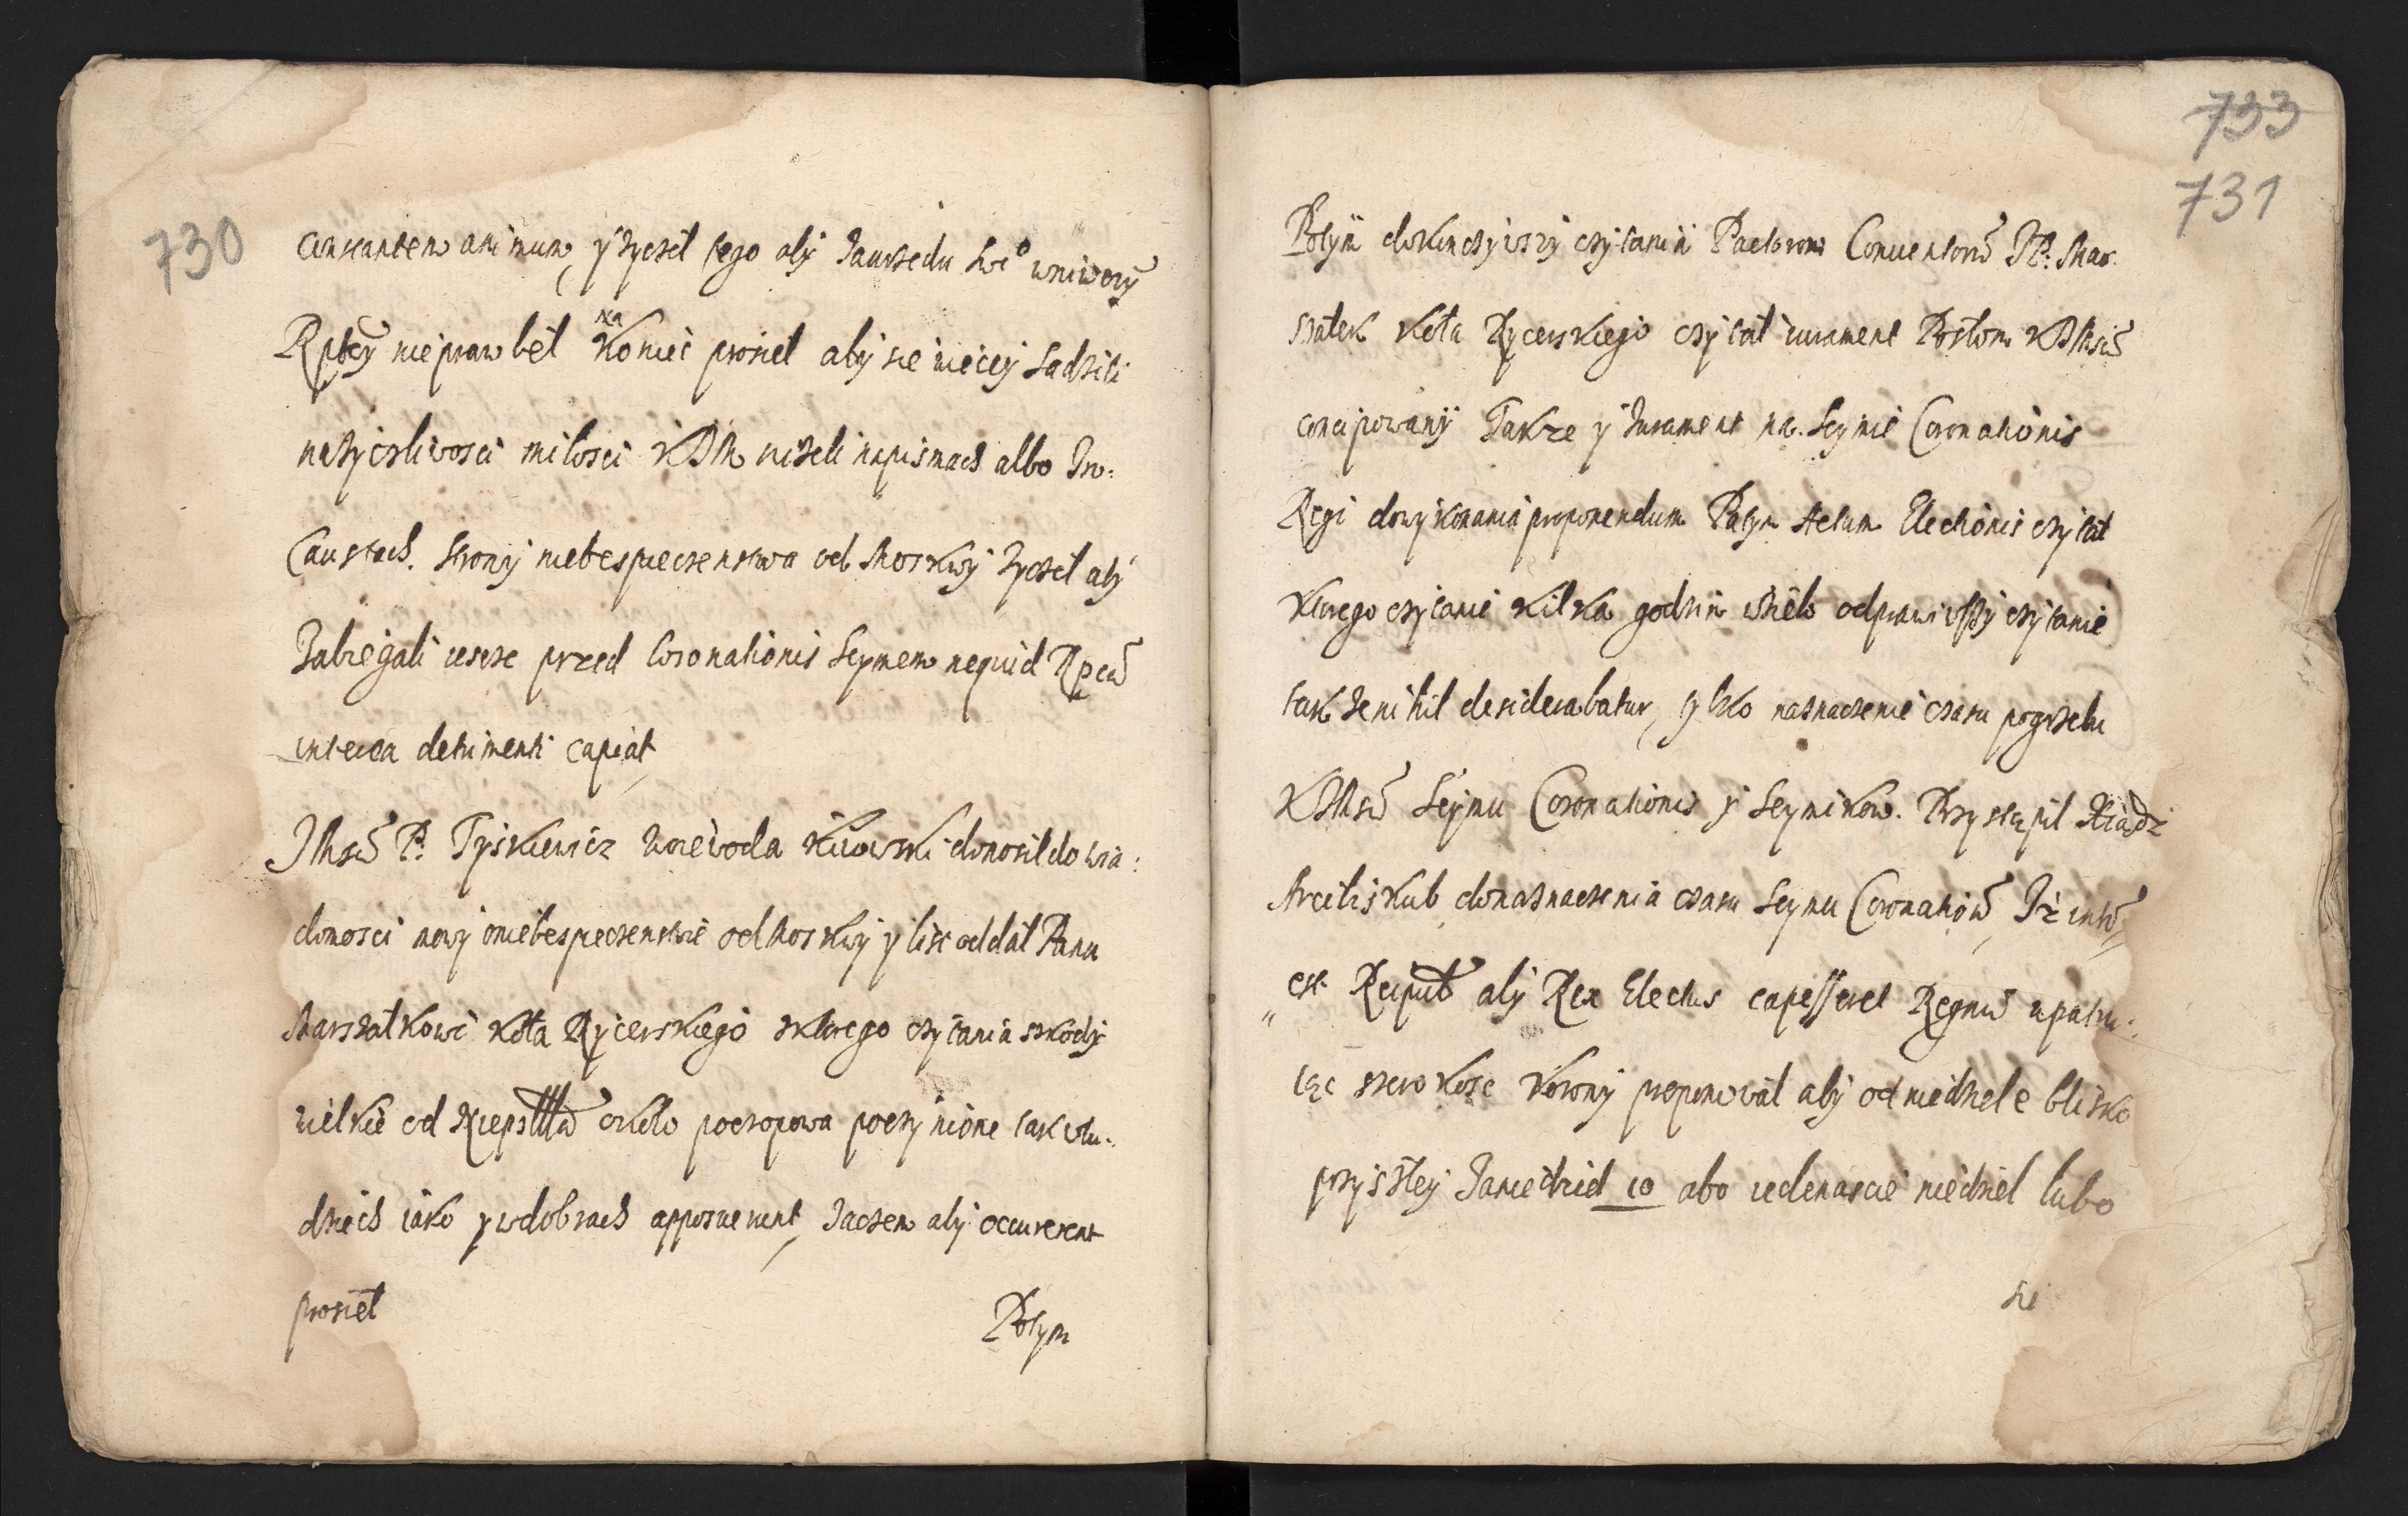 730
constantem animum, y zyczel tego aby zawszedu swe° wniwczy
Rptcy nieprawbel
na
Koniec prosiel aby sie wiecey sadzili
nazyczliwosci milosci KJM nizeli napismach albo In:
Caustach. strony niebespieczenstwa od Moskwy zyczel aby
Zabiegali iescze przed Coronationis Seymem nequid Rpca
interea detrimenti capiat,
JMsc P. Tyskiewicz Woiewoda Kiiowski donosil do wia:
domosci nowy oniebespieczenstwie od Moskwy y list oddal Panu
Marszalkowi Kola Rycerskiego zktorego czytania szkody
wielkie od okolo poczopowa poczynione tak wlu:
dziech iako y wdobrach apposuerunt, zaczem aby occurerent
prosiel
Potym
733
731
Potym dokonczywszy czytanii Pactorom Conuentoru JP. Mar:
szalek Kola Rycerskiego czytal iurament Poslom KJMsci
concipowany Takze y Iurament na Seymie Coronationis
Regi dowykonania proponendum Potym Actum Electionis czytal
Ktorego czytanie kilka godzin wzielo odprawiwszy czytanie
tak ze nihil desiderabatur, tylko naznaczenie czasu pogrzebu
KJMsci Seymu Coronationis y Seymikow. Przystapil Xiadz
Arcibiskub donaznaczenia czasu Seymu Coronationis, Iz inter
est Reipub aby Rex Electus capesseret Regnum upatru:
iąc szerokosc Korony proponowal aby od niedziele blisko
przyszley Zaniedziel 10 abo iedenascie niedziel lubo
sie